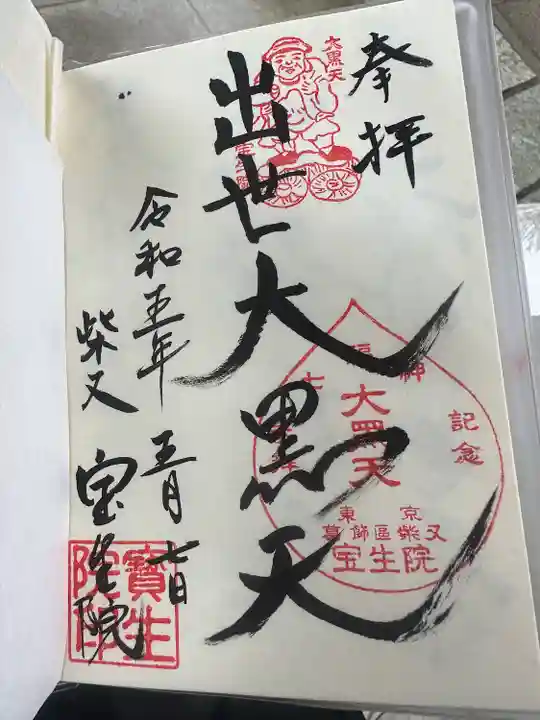 奉拝
大黒天
出世大黒天
福神
記念
大黒天
東京
葛飾區柴又
宝生院
令和五年 五月 七日
柴又 宝生院
寶生院印